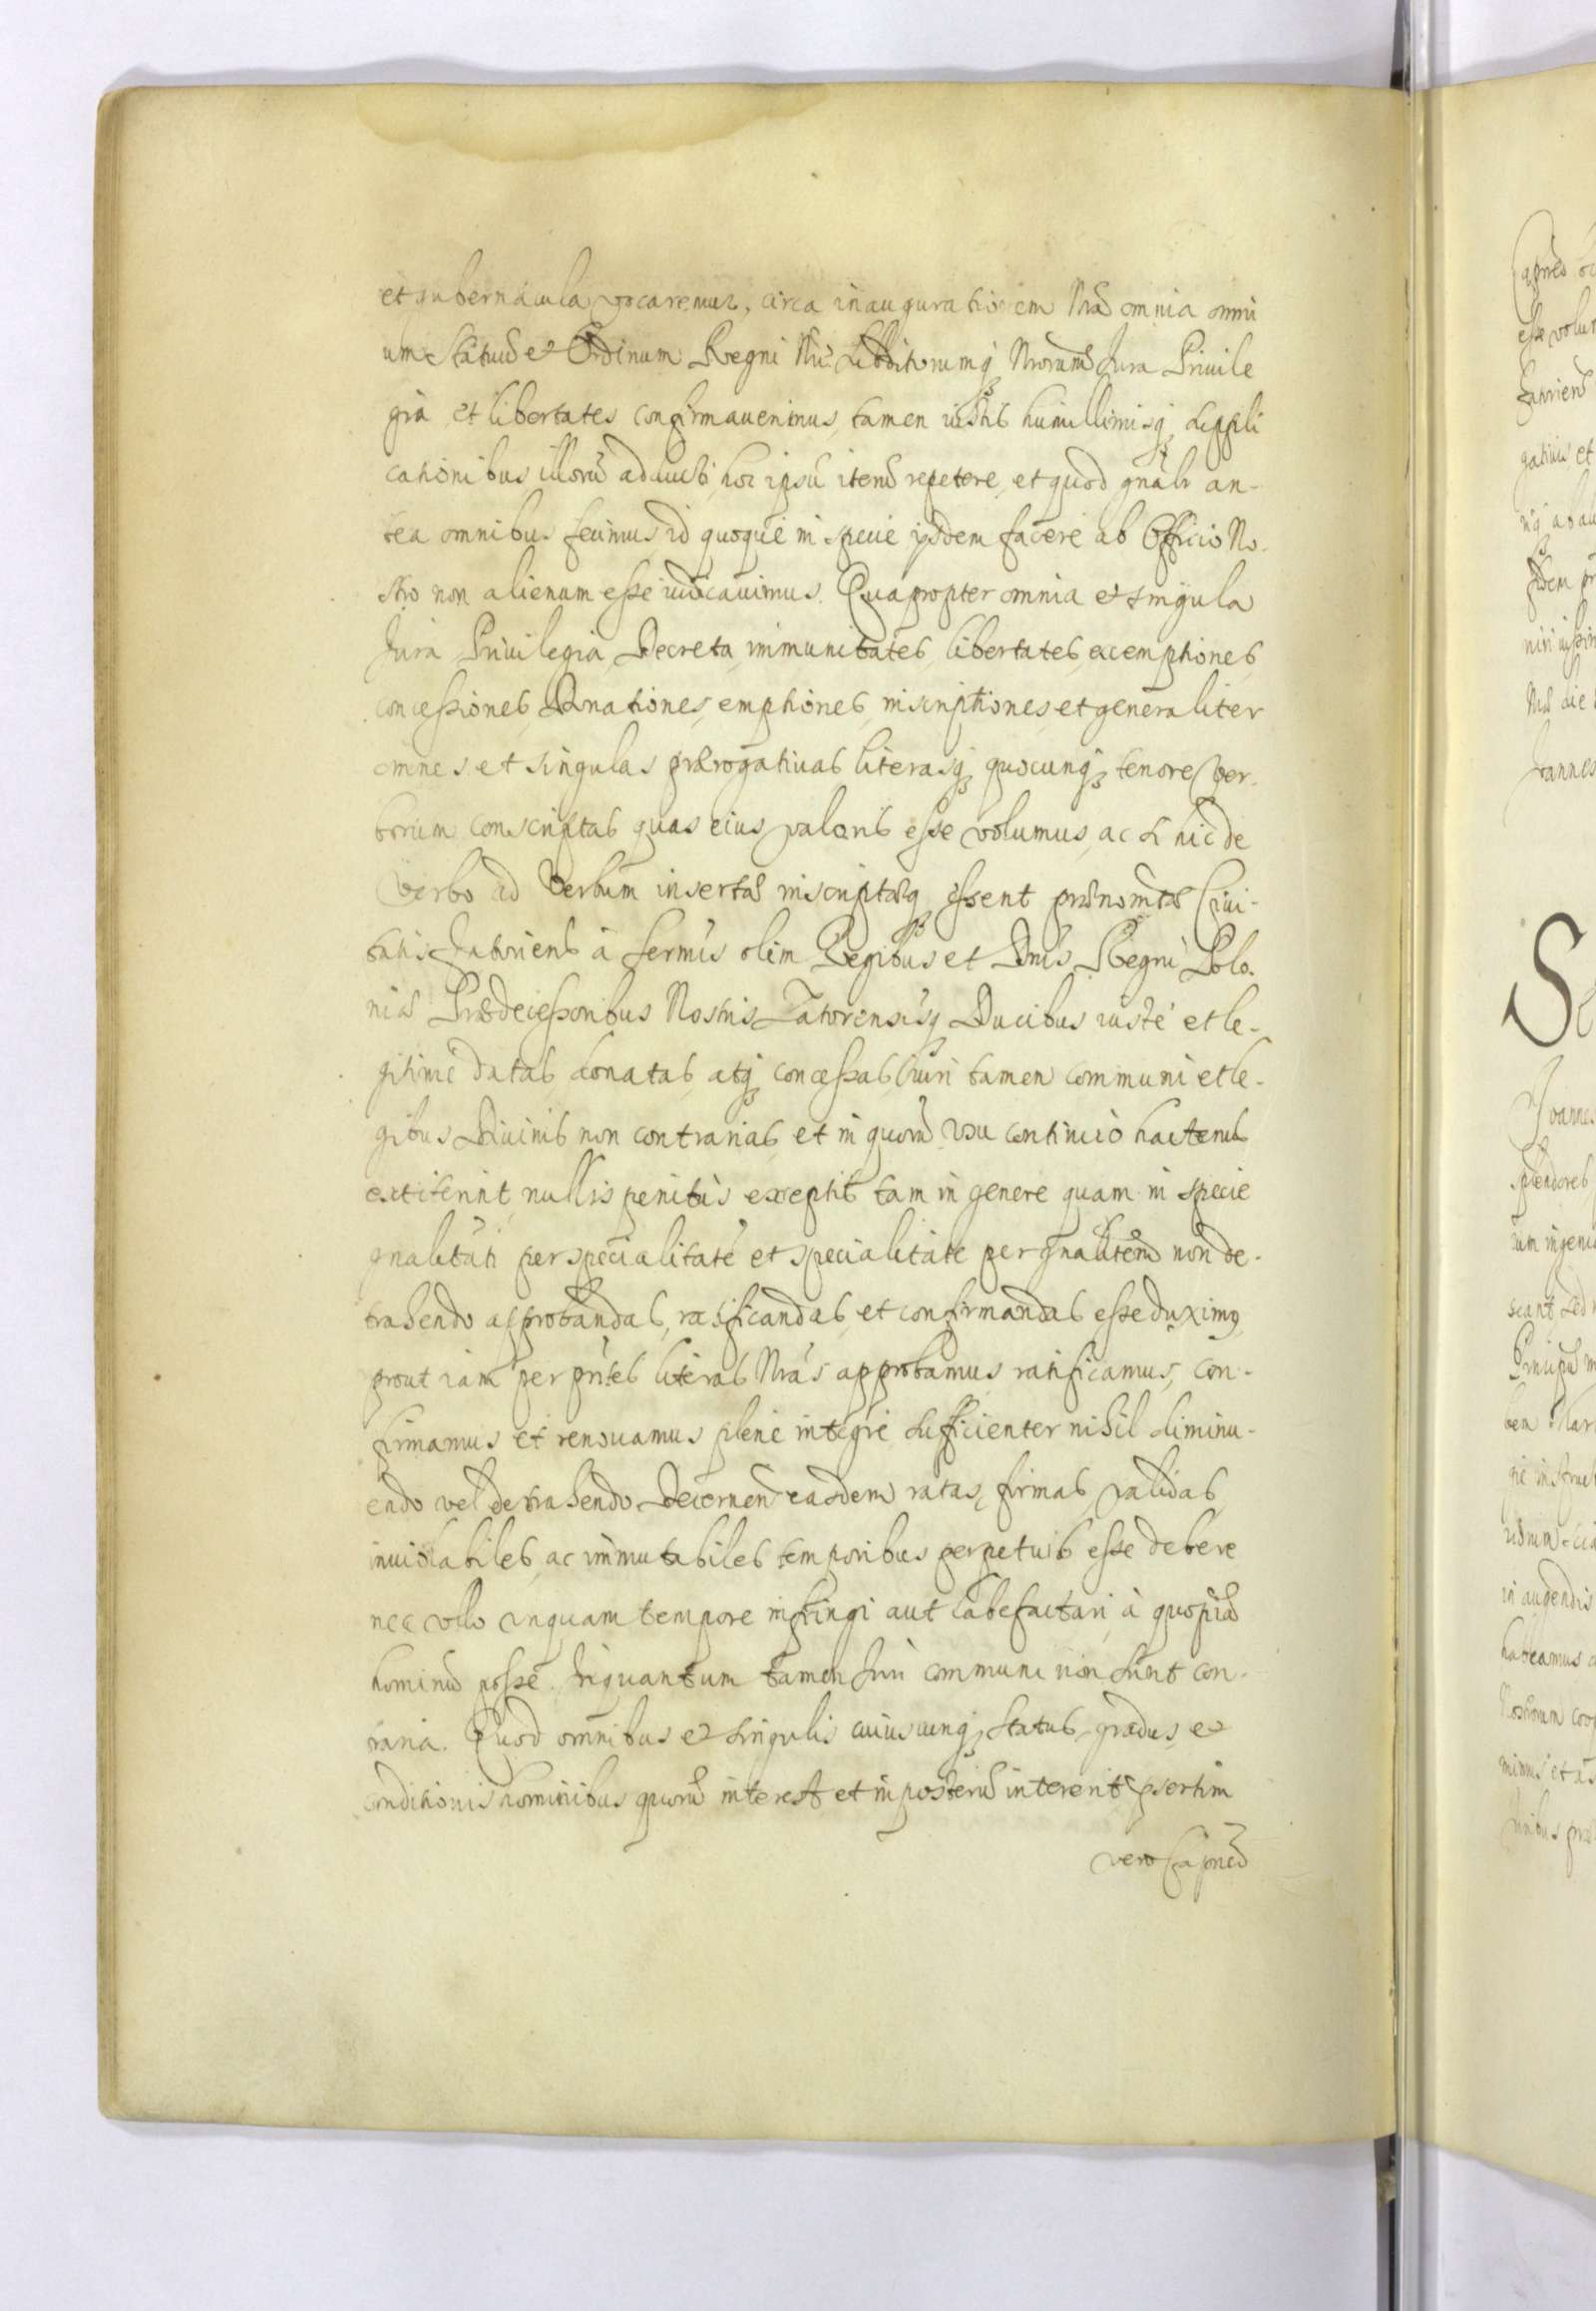 et gubernacula vocaremur, circa inaugurationem Nrã omnia omni
um Statuũ et Ordinum Regni Nri Subditorumq Nrorum Jura Priuile
gia et libertates confirmauerimus, tamen iustis humillimisq suppli
cationibus illorũ adducti, hoc ipsũ iterũ repetere, et quod gnãlr an-
tea omnibus fecimus, id quoque in specie ijsdem facere ab Officio No-
stro non alienum esse iudicauimus. Quapropter omnia et singula
Jura Priuilegia Decreta immunitates, libertates, exemptiones,
concessiones, Donationes, emptiones, inscriptiones, et generaliter
omnes et singulas prærogatiuas literasq quocunq tenore ver-
borum conscriptas quas eius valoris esse volumus, ac si hic de
verbo ad verbum insertæ inscriptæq essent prænomtæ Ciui-
tatis Zatoriens à Sermis olim Regibus et Dnis Regni Polo-
niæ Prædecessoribus Nostris Zatorensisq Ducibus iuste et le-
gitime datas, donatas, atq concessas, Iuri tamen communi et le-
gibus Diuinis non contrarias, et in quorũ vsu continuo hactenus
extiterint, nullis penitùs exceptis tam in genere quam in specie
gnalitati per specialitatẽ et specialitate per gnalitatem non de-
trahendo approbandas, ratificandas, et confirmandas esse duximq
prout iam per pntes literas Nras approbamus ratificamus, con-
firmamus et renouamus plene integre sufficienter nihil diminu-
endo vel detrahendo. Decernen easdem ratas, firmas, validas,
inuiolabiles, ac immutabiles temporibus perpetuis esse debere
nec vllo vnquam tempore infringi aut labefactari à quopiã
hominũ posse. Inquantum tamen Juri communi non sunt con-
traria. Quod omnibus et singulis cuiuscunq status, gradus, et
conditionis hominibus quorũ interest et in posterũ intererit psertim
vero Capneo
Capneo
esse volu
Zatoriens
gatiuis et
Joannes
Splendores
rum ingeni
scant, sed
Principũ
in augendis
habeamus